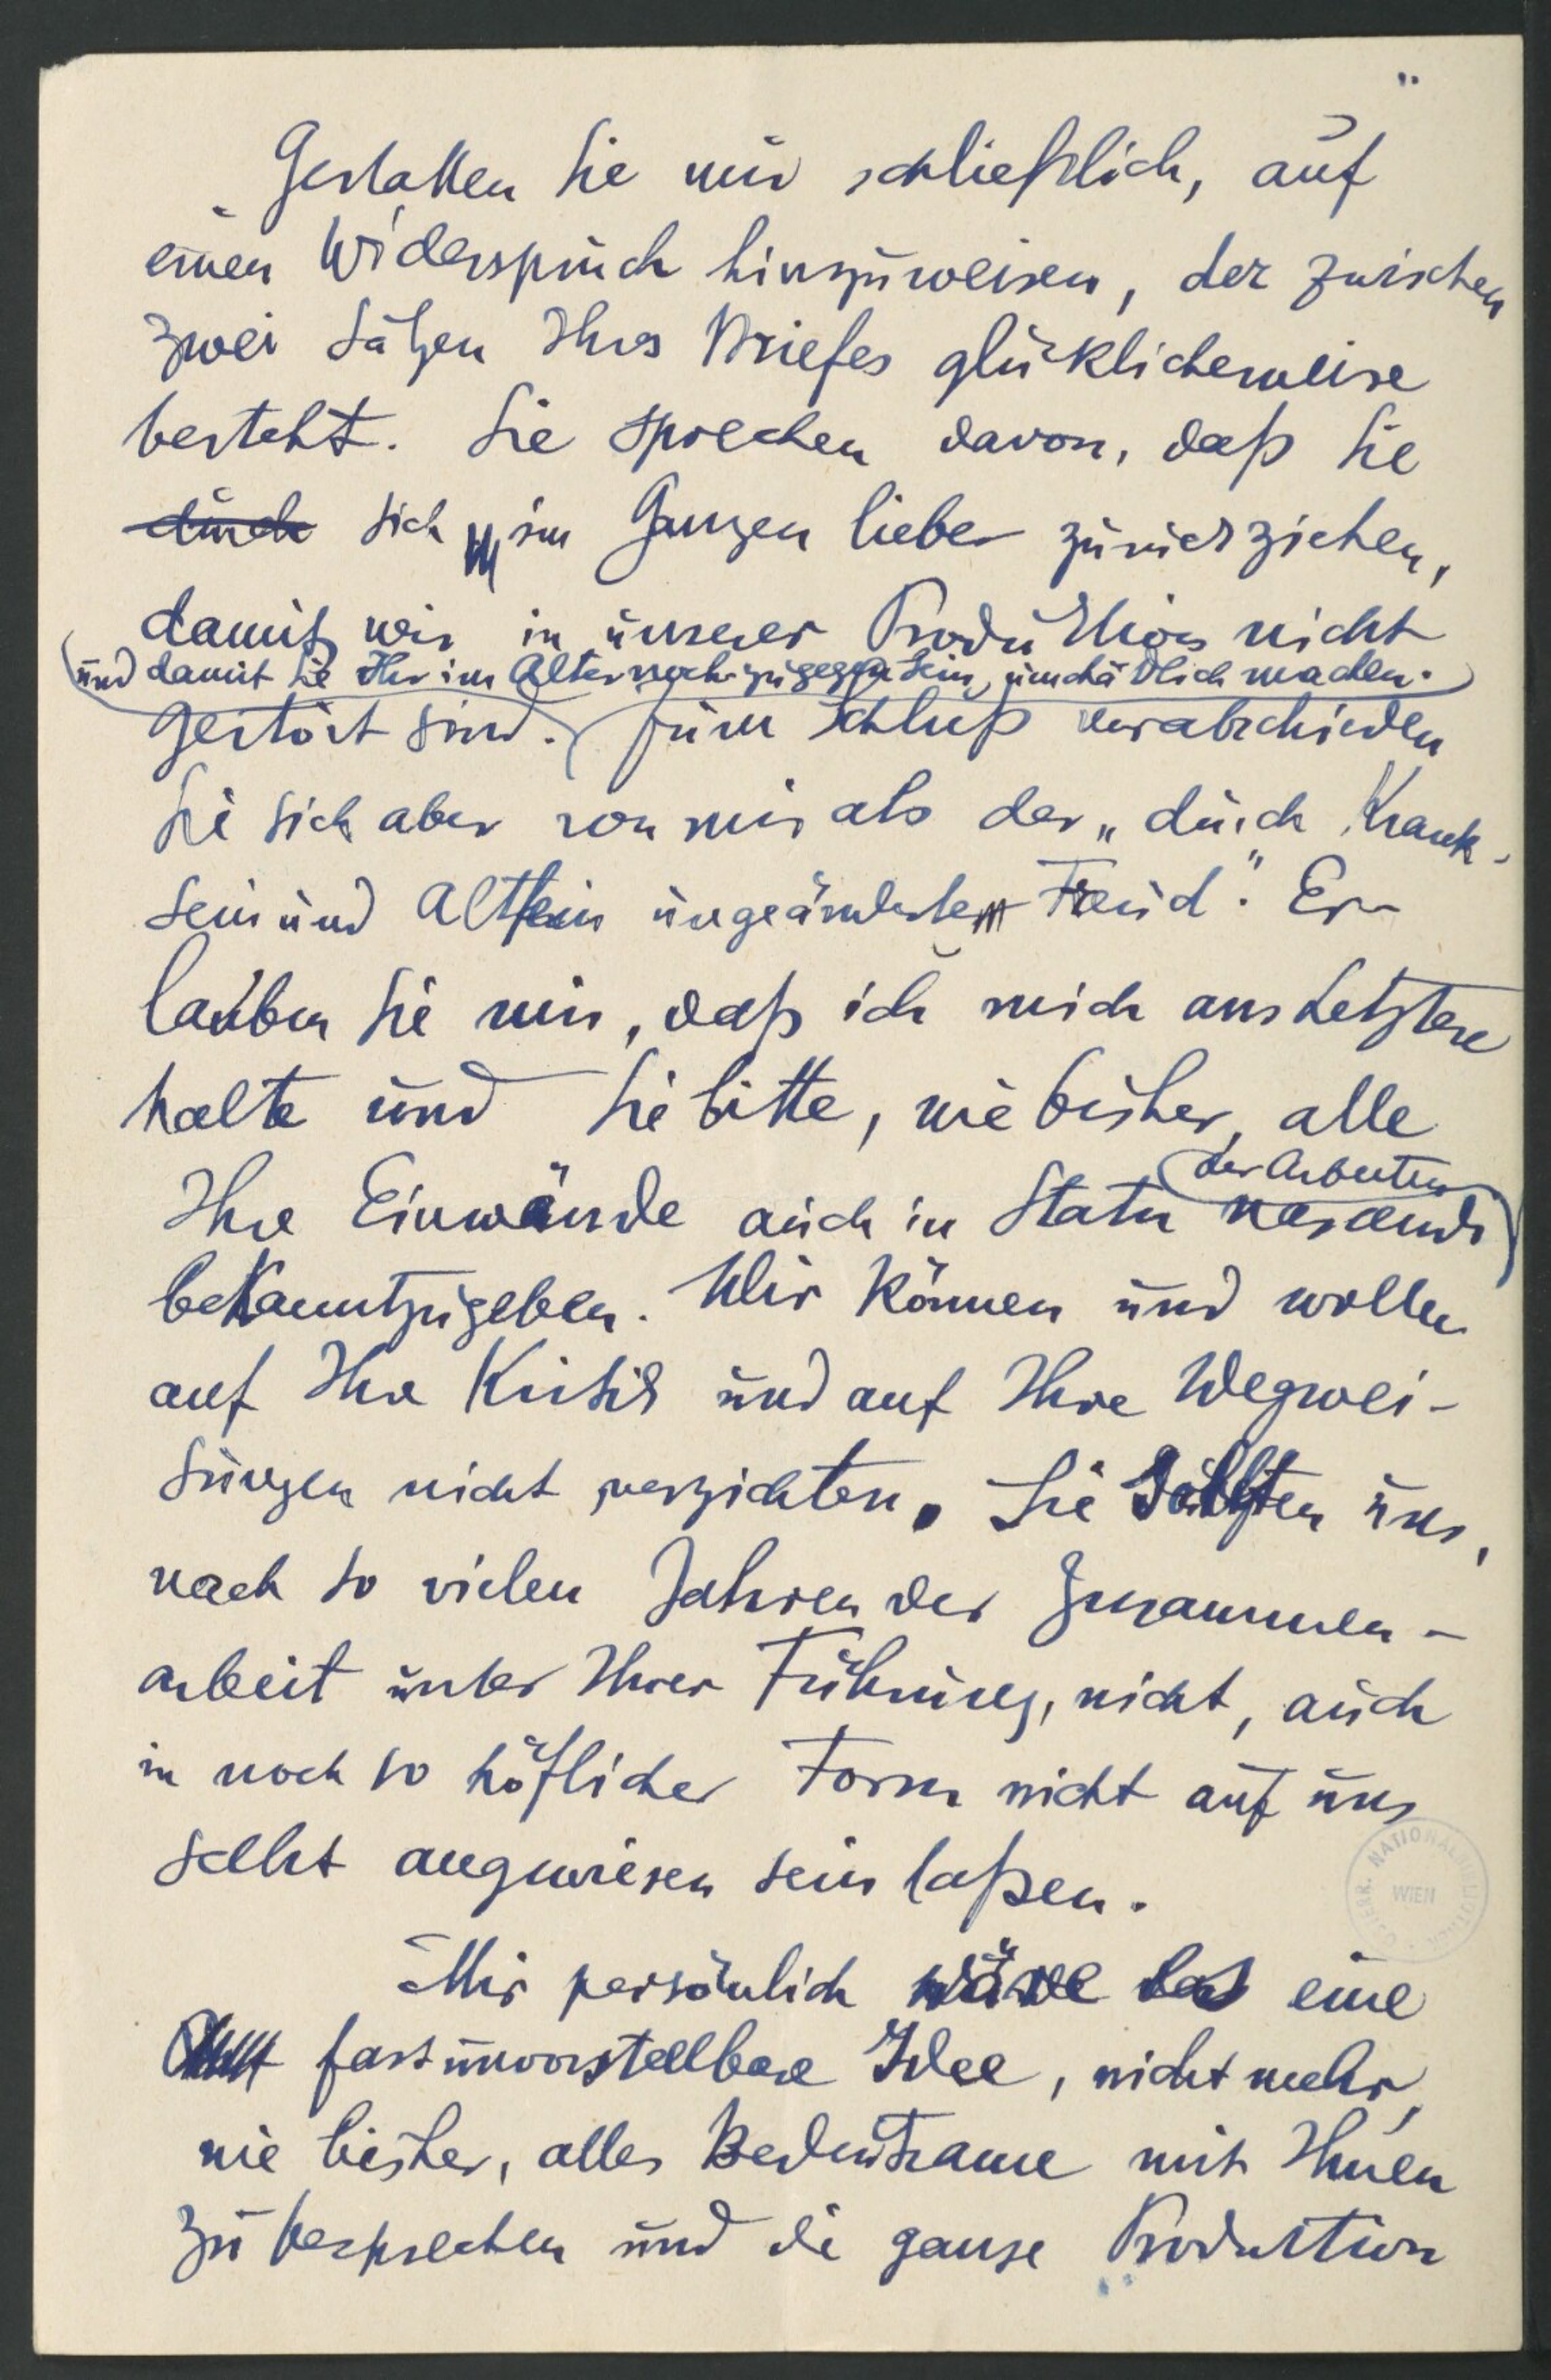 Gestatten Sie mir schließlich, auf
einen Widerspruch hinzuweisen, der zwischen
zwei Sätzen Ihres Briefes glücklicherweise
besteht. Sie sprechen davon, daß Sie
durch sich im Ganzen lieber zurückziehen,
damit wir in unserer Produktion nicht
und damit Sie Ihr im Alter noch zugegen Sein, unschädlich machen.
gestört sind. Zum Schluß verabschieden
Sie sich aber von mir als der „durch Krank-
sein und Altsein ungeänderte Freud". Er-
lauben Sie mir, daß ich mich ans Letztere
halte und Sie bitte, wie bisher, alle
der Arbeiten
Ihre Einwände auch in Statu nascendi
bekanntzugeben. Wir können und wollen
auf Ihre Kritik und auf Ihre Wegwei-
sungen nicht verzichten. Sie sollten uns,
nach so vielen Jahren der Zusammen-
arbeit unter Ihrer Führung, nicht, auch
in noch so höflicher Form nicht auf uns
selbst angewiesen sein laßen.
Mir persönlich wäre das eine
fast unvorstellbare Idee, nicht mehr,
wie bisher, alles Bedeutsame mit Ihnen
zu besprechen und die ganze Produktion
ÖSTERR. NATIONALBIBLIOTHEK
WIEN